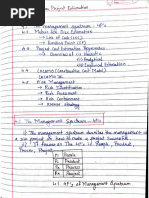 Project Estimation
4.1 The management spectrum - 4P's
4.2 Metrics for Size Estimation
→ Line of Code (LOC)
→ Function Point (FP)
4.3 Project Cost Estimation Approaches
→ Overview of Heuristic
→ Analytical
→ Empirical Estimation
4.4 COCOMO (Constructive Cost Model)
COCOMO II
4.5 Risk Management
→ Risk Identification
→ Risk Assessment
→ Risk Containment
→ RMMM strategy
4.1 The Management Spectrum - 4P's
1) The management spectrum describes the management of
a project
2) It focuses on the 4P's People, Product
Process, Project
P1 People
P2 Product
P3 Process
P4 Project
4.1 4P's of Management Spectrum